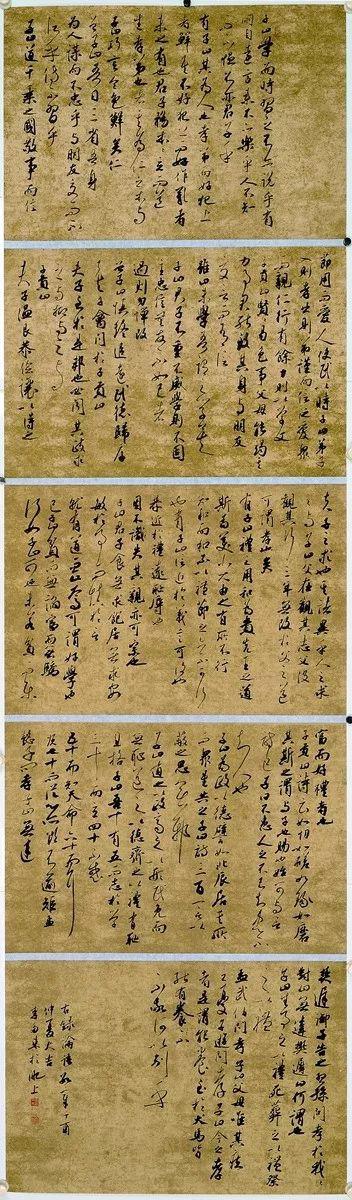 子曰學而時習之不亦說乎有
朋自遠方來不亦樂乎人不知
而不慍不亦君子乎
有子曰其為人也孝弟而好犯上
者鮮矣不好犯上而好作亂者
未之有也君子務本本立而道
生孝弟也者其為仁之本與
子曰巧言令色鮮矣仁
曾子曰吾日三省吾身
為人謀而不忠乎與朋友交而不
信乎傳不習乎
子曰道千乘之國敬事而信
節用而愛人使民以時子曰弟子
入則孝出則弟謹而信汎愛眾
而親仁行有餘力則以學文
子夏曰賢賢易色事父母能竭其
力事君能致其身與朋友
交言而有信
雖曰未學吾必謂之學矣
子曰君子不重不威學則不固
主忠信無友不如己者
過則勿憚改
曾子曰慎終追遠民德歸厚
矣子禽問於子貢曰
夫子至於是邦也必聞其政求
之與抑與之與
子貢曰
夫子溫良恭儉讓以得之
夫子之求也其諸異乎人之求
之與子曰父在觀其志父沒
觀其行三年無改於父之道
可謂孝矣
有子曰禮之用和為貴先王之道
斯為美小大由之有所不行
知和而和不以禮節之亦不可行
也有子曰信近於義言可復也
恭近於禮遠恥辱也
因不失其親亦可宗也
子曰君子食無求飽居無求安
敏於事而慎於言
就有道而正焉可謂好學也
已子貢曰貧而無諂富而無驕
何如子曰可也未若貧而樂
富而好禮者也
子貢曰詩云如切如磋如琢如磨
其斯之謂與子曰賜也始可與言
詩子曰不患人之不己知患不
知人也
子曰為政以德譬如北辰居其所
而眾星共之子曰詩三百一言以
蔽之曰思無邪
子曰道之以政齊之以刑民免而
無恥道之以德齊之以禮有恥
且格子曰吾十有五而志於學
三十而立四十不惑
五十而知天命六十而耳順
七十而從心所欲不踰矩孟
懿子問孝子曰無違
樊遲御子告之曰孟孫問孝於我我
對曰無違樊遲曰何謂也
子曰生事之以禮死葬之以禮祭
之以禮
孟武伯問孝子曰父母唯其疾
之憂子游問孝子曰今之孝
者是謂能養至於犬馬皆
能有養不
敬何以別乎
丁酉
仲夏大吉